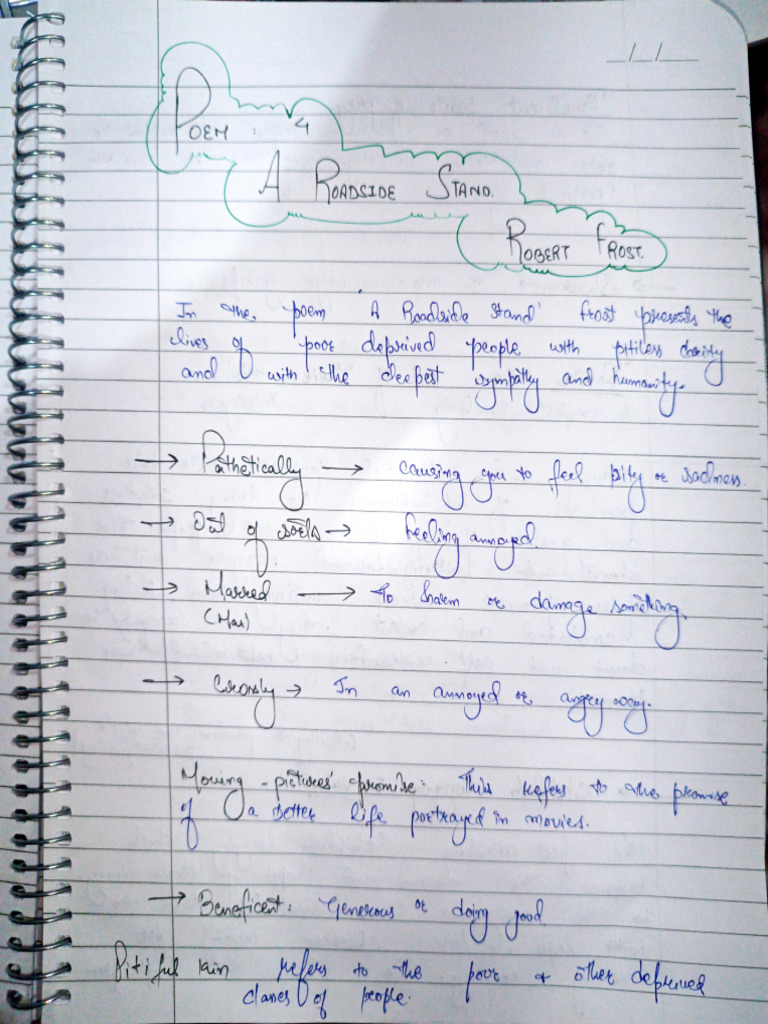 _/_/_
POEM : 4
A ROADSIDE STAND.
ROBERT FROST.
In the, poem 'A Roadside Stand' frost presents the
lives of poor deprived people with pitiless clarity
and with the deepest sympathy and humanity.
→ Pathetically → causing you to feel pity or sadness.
→ Out of sorts → feeling annoyed.
→ Marred → To harm or damage something.
(Mar)
→ Crossly → In an annoyed or angry way.
Moving-pictures' promise: This refers to the promise
of a better life portrayed in movies.
→ Beneficent: Generous or doing good.
Pitiful kin refers to the poor & other deprived
classes of people.